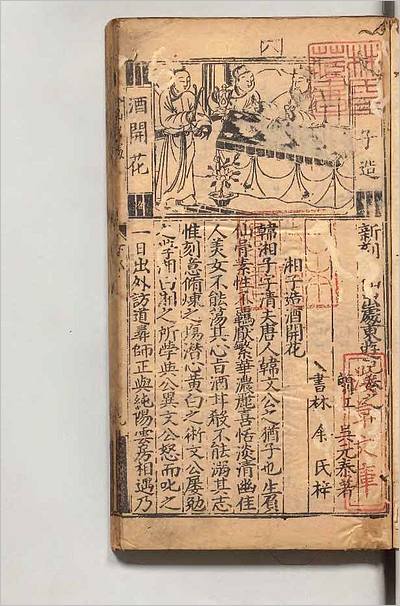 子造
酒開花
新刻 仙出處東遊記卷之
吳元泰著
書林 余氏梓
湘子造酒開花
韓湘子字清夫唐人韓文公之猶子也生有
仙骨素性不羈厭繁華濃麗喜恬淡清幽佳
人美女不能蕩其心旨酒甘殽不能溺其志
惟刻意修煉之塲潛心黃白之術文公屢勉
之學湘曰湘之所學與公異文公怒而叱之
一日出外訪道尋師正與純陽雲房相遇乃